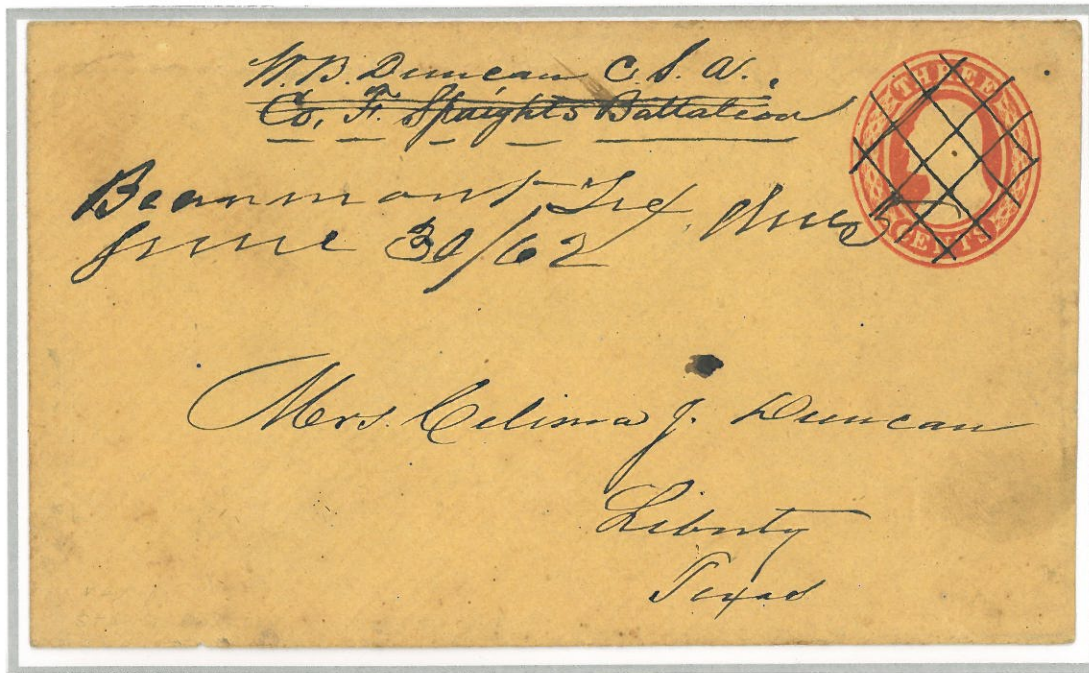 W. B. Duncan C. S. A.
Co. F. Spaights Battalion
Beaumont Tex Due 5
June 30/62
THREE
CENTS
Mrs. Celima J. Duncan
Liberty
Texas